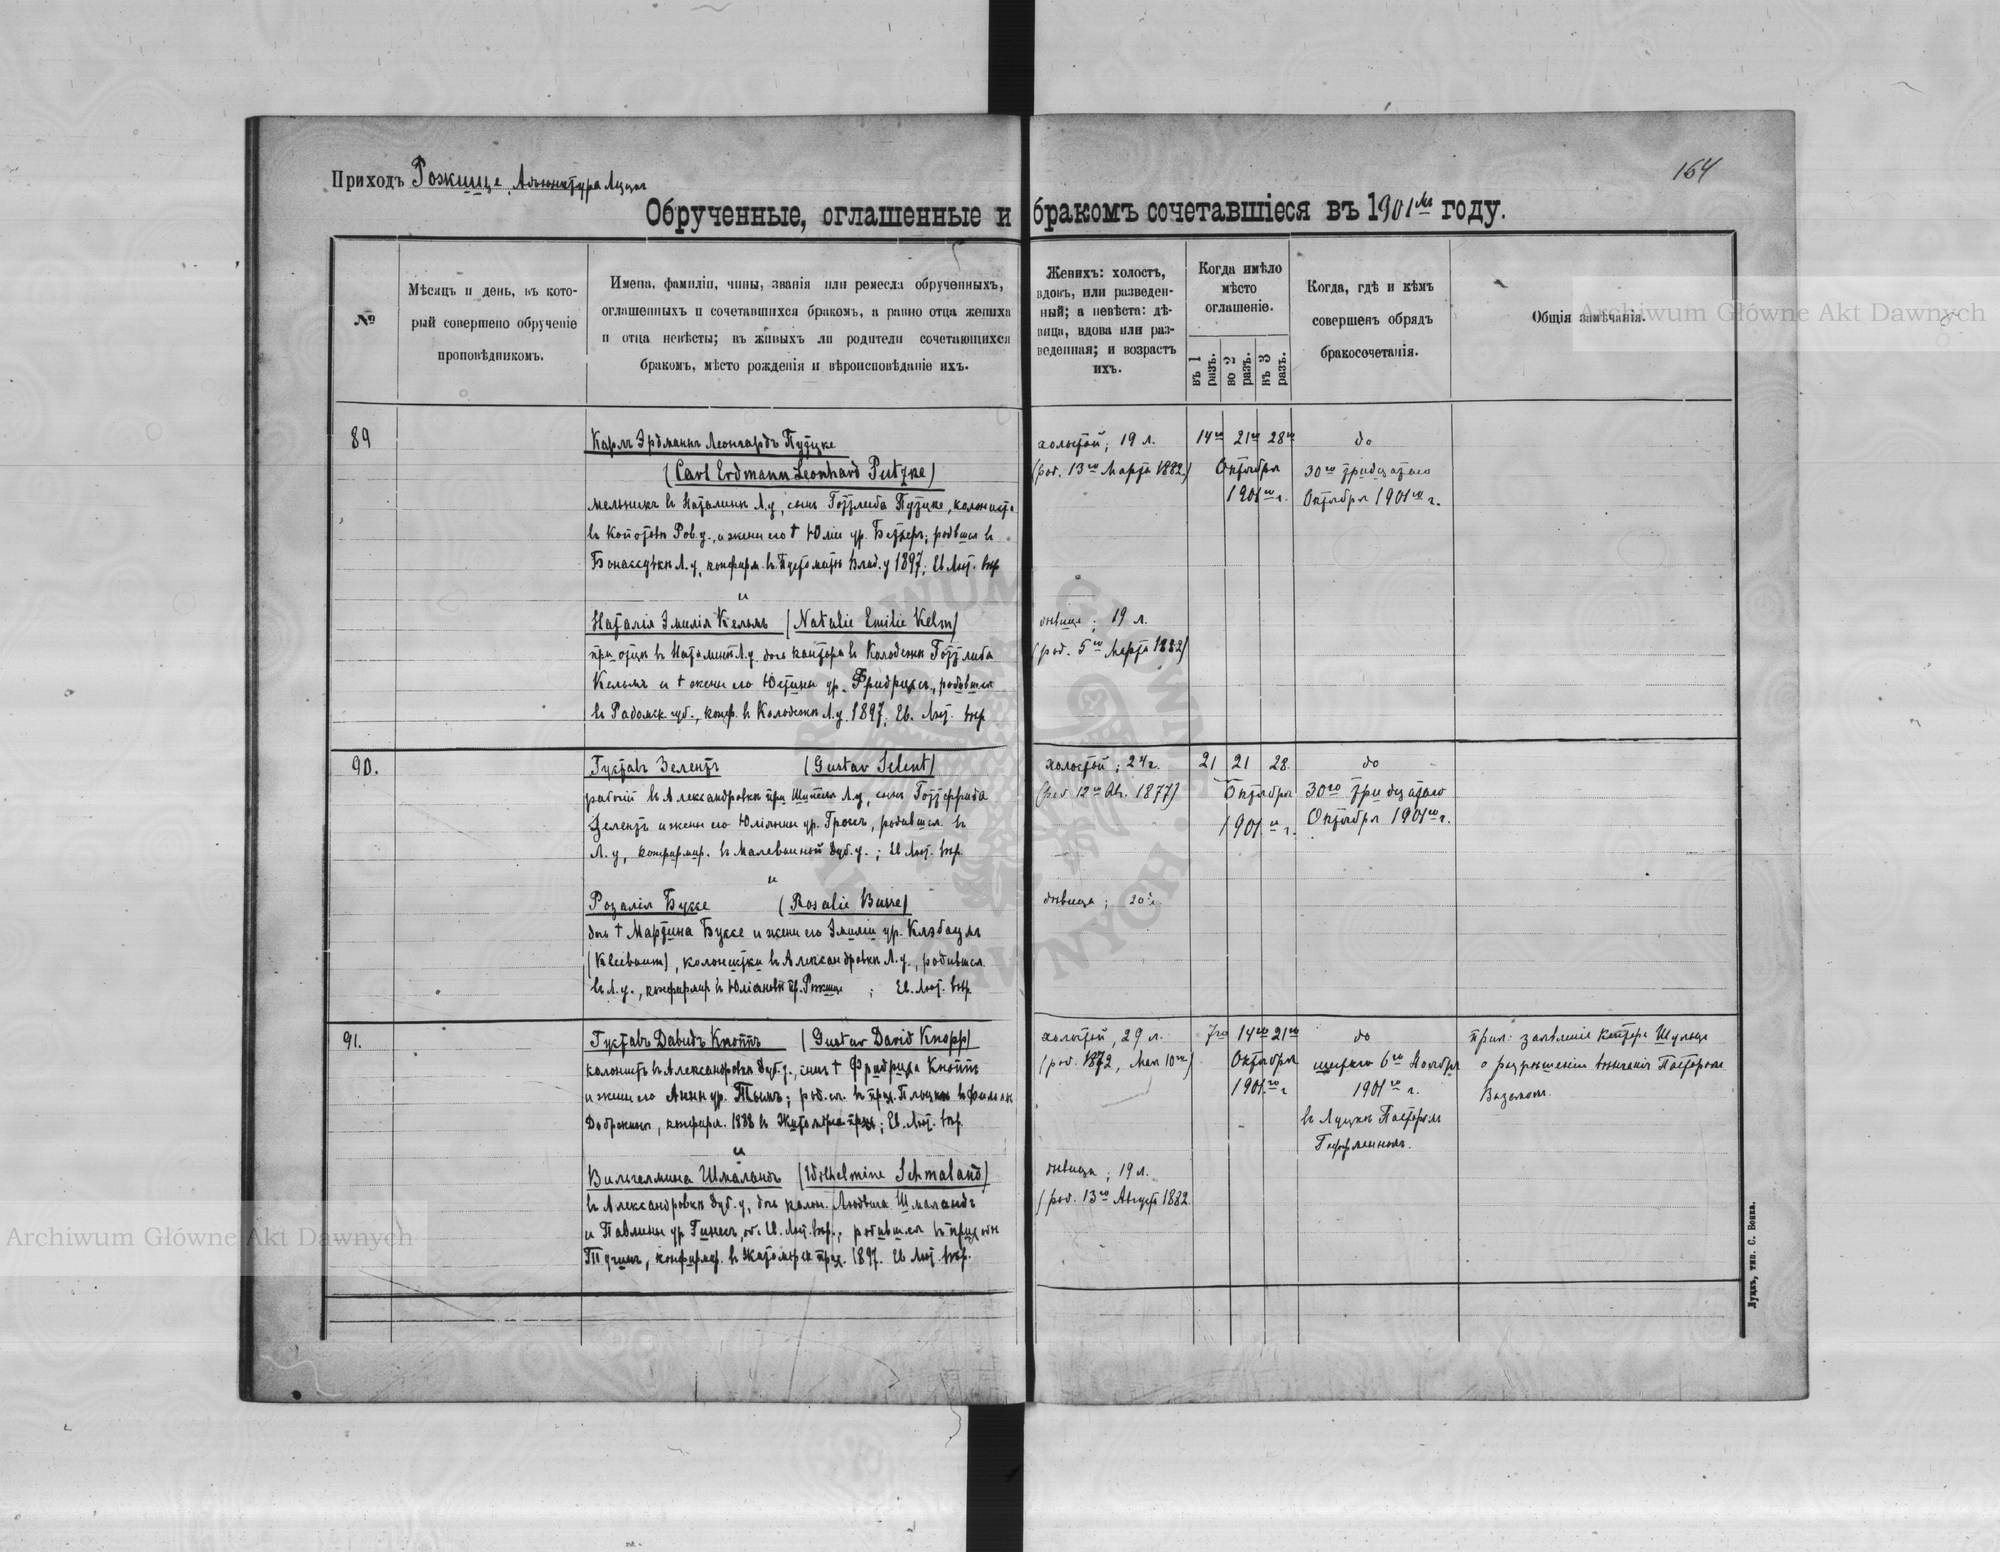 164
Приходъ Рожище, Адъюнктура Луцкъ
Обрученные, оглашенные и бракомъ сочетавшіеся въ 1901мъ году.
№
Мѣсяцъ и день, въ кото-
рый совершено обрученіе
проповѣдникомъ.
Имена, фамиліи, чины, званія или ремесла обрученныхъ,
оглашенныхъ и сочетавшихся бракомъ, а равно отца жениха
и отца невѣсты; въ живыхъ ли родители сочетающихся
бракомъ, мѣсто рожденія и вѣроисповѣданіе ихъ.
Женихъ: холостъ,
вдовъ, или разведен-
ный; а невѣста: дѣ-
вица, вдова или раз-
веденная; и возрастъ
ихъ.
Когда имѣло
мѣсто
оглашеніе.
въ 1 разъ.
во 2 разъ.
въ 3 разъ.
Когда, гдѣ и кѣмъ
совершенъ обрядъ
бракосочетанія.
Общія замѣчанія.
89
Карлъ Эрдманнъ Леонгардъ Путцке
(Carl Erdmann Leonhard Putzke)
мельникъ въ Наталинѣ Л.у., сынъ Готтлиба Путцке, колониста
въ Ров.у., и жены его † Юліи ур. Бетхеръ; родился въ
Л.у., конфирм. въ Влад.у 1897; Ев Лют. вѣр
и
Наталія Эмилія Кельмъ (Natalie Emilie Kelm)
при отцѣ въ Л.у. дочь кантора въ Колодежѣ Готтлиба
Кельмъ и † жены его Юстины ур. Фридрихъ, родившаяся
въ Радомск. губ., конф. въ Колодежѣ Л.у. 1897; Ев. Лют. вѣр
холостой; 19 л.
(род. 13го Марта 1882)
14го 21го 28го
Октября
1901го г.
до
30го тридцатаго
Октября 1901го г.
дѣвица; 19 л.
(род. 5го Марта 1882)
90.
Густавъ Зелентъ (Gustav Selent)
рабочій въ Александровкѣ при Л.у, сынъ Готтфрида
Зелентъ и жены его Юліанны ур. Гроссъ, родившся въ
Л.у, конфирмир. въ Малеванной Дуб.у.; Ев Лют. вѣр.
и
Розалія Буссе (Rosalie Busse)
дочь † Мартина Буссе и жены его Эмиліи ур. Клэбаумъ
(Kleebaum), колонистки въ Александровкѣ Л.у., родившся
въ Л.у., конфирмир въ Юліановкѣ пр. Рожище; Ев. Лют. вѣр
холостой; 24 г.
(род 12го Авг. 1877)
21 21 28
Октября
1901го г.
до
30го тридцатаго
Октября 1901го г.
дѣвица; 20 г.
91.
Густавъ Давидъ Кноппъ (Gustav David Knopp)
колонистъ въ Александровкѣ Дуб.у., сынъ † Фридриха Кноппъ
и жены его Анны ур. Тымъ; род.ся въ прих. Плоцкъ въ
Добржинъ, конфирм. 1888 въ Житомірѣ прих; Ев. Лют. вѣр.
и
Вильгелмина Шмаландъ (Wilhelmine Schmaland)
въ Александровкѣ Дуб.у, дочь колон. Людвига Шмаландъ
и Павлины ур , об. Ев. Лют. вѣр.; родившся въ приходѣ
Тучинъ, конфирмир. въ Житомірѣ прих. 1897. Ев Лют. вѣр.
холостой, 29 л.
(род. 1872, Мая 10го)
7го 14го 21го
Октября
1901го г
до
шестаго 6го Ноября
1901го г.
въ Луцкѣ Пасторомъ
прил: заявленіе кантора Шульца
о разрѣшеніи вѣнчанія Пасторомъ
дѣвица; 19 л.
(род. 13го Августа 1882
Луцкъ, тип. С. Бонка.
Archiwum Główne Akt Dawnych
Archiwum Główne Akt Dawnych